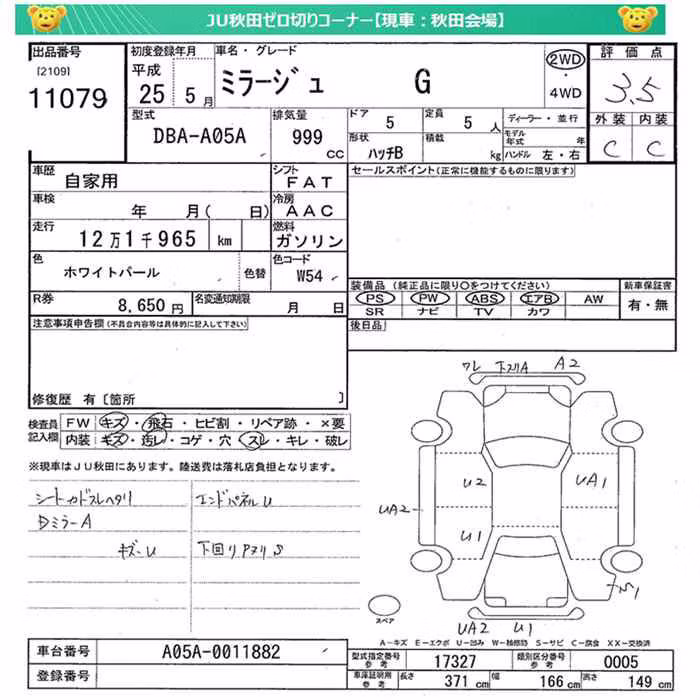 JU秋田ゼロ切りコーナー【現車：秋田会場】
出品番号 初度登録年月 車名・グレード 評価点
[2109] 平成 ミラージュ G 2WD・4WD 3.5
11079 25年 5月
型式 排気量 ドア 5 定員 5人 ディーラー・並行 外装 内装
DBA-A05A 999 CC 形状 ハッチB 積載 kg モデル年式 年 C C
ハンドル 左・右
車歴 自家用 シフト FAT セールスポイント(正常に機能するものに限ります)
車検 年 月( 日) 冷房 AAC
走行 12万1千965 km 燃料 ガソリン
色 ホワイトパール 色替 色コード W54
装備品 (純正品に限り○をつけてください) 新車保証書
R券 8,650円 名変通知期限 月 日 PS PW ABS エアB AW 有・無
SR ナビ TV カワ
注意事項申告欄(不具合内容等は具体的に記入して下さい) 後日品
修復歴 有 [箇所 ]
検査員記入欄 FW キズ・飛石・ヒビ割・リペア跡・×要
内装 キズ・汚レ・コゲ・穴・スレ・キレ・破レ
※現車はJU秋田にあります。陸送費は落札店負担となります。
ワレ 下スリA A2
シートカドスレヘタリ エンドパネルU
DミラーA
キズーU 下回りアオリS
U2 UA1
UA2 U1
UA2 U1
スペア
A－キズ E－エクボ U－凹み W－補修跡 S－サビ C－腐食 XX－交換済
車台番号 A05A-0011882 型式指定番号 参考 17327 類別区分番号 参考 0005
登録番号 車庫証明用 参考 長さ 371 cm 幅 166 cm 高さ 149 cm